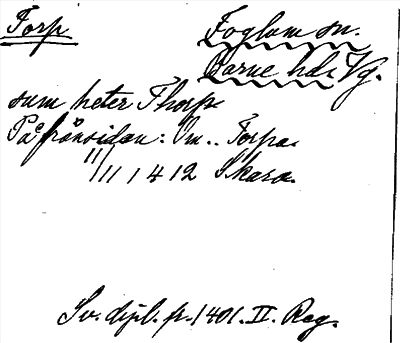 Torp
Foglum sn.
Barne hd. Vg.
sum heter Thorp
På frånsidan: Om .. Torpa.
11/11 1412 Skara.
Sv. dipl. fr. 1401. II. Reg.